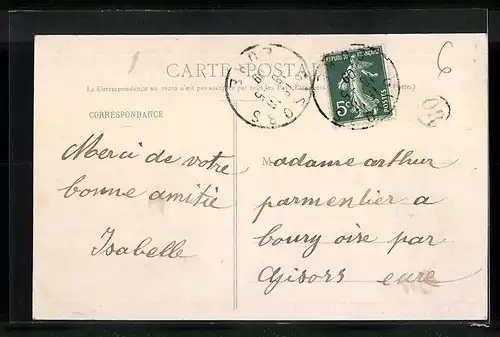 CARTE POSTALE
La Correspondance au recto n'est pas acceptée par tous les Pays
CORRESPONDANCE
REPUBLIQUE FRANÇAISE
5c
POSTES
6
Merci de votre
bonne amitié
Isabelle
Madame arthur
parmentier a
boury oise par
Gisors eure